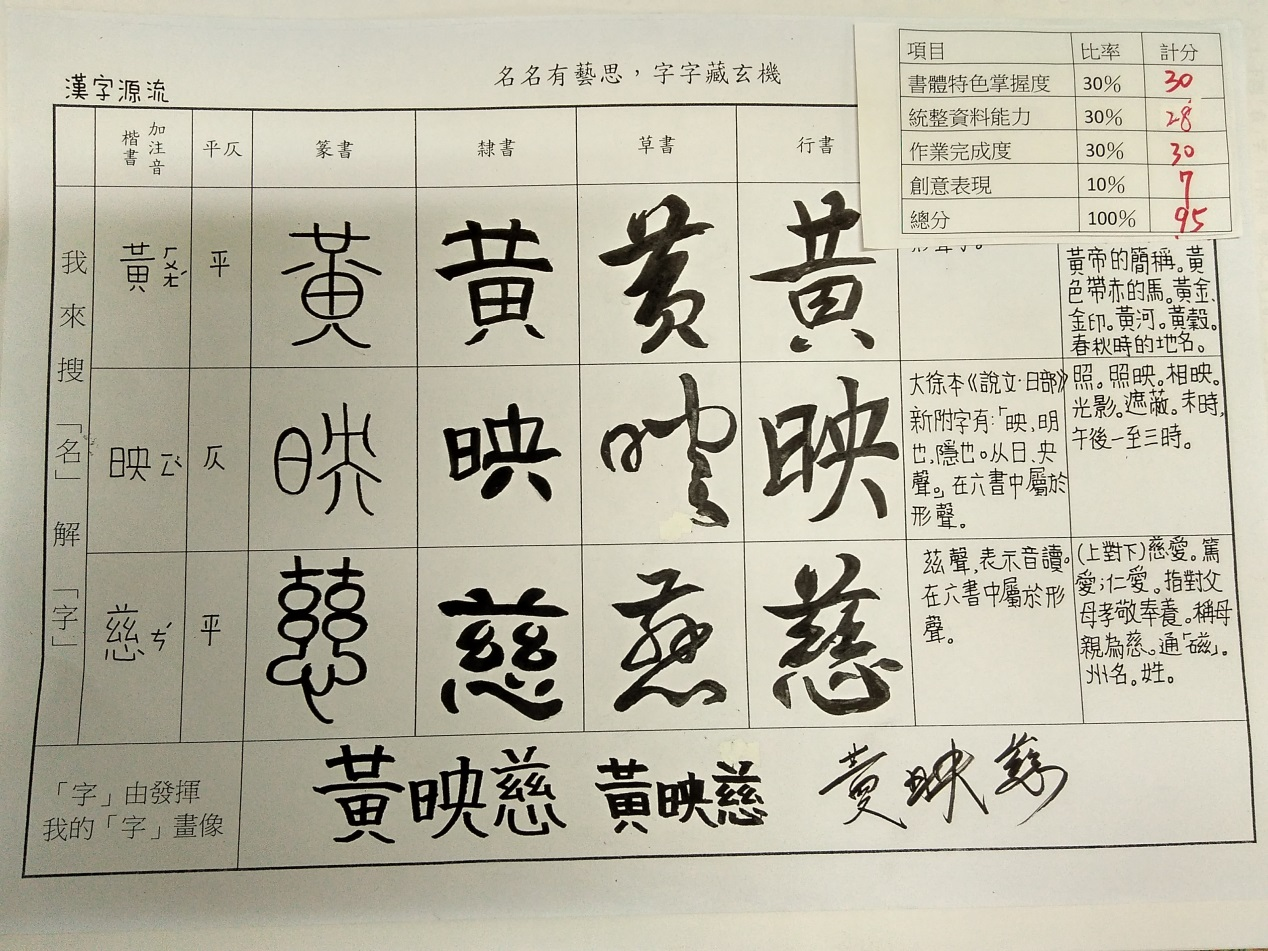 名名有藝思，字字藏玄機
漢字源流
項目 比率 計分
書體特色掌握度 30% 30
統整資料能力 30% 28
作業完成度 30% 30
創意表現 10% 7
總分 100% 95
楷書 加注音 平仄 篆書 隸書 草書 行書
我來搜「名」解「字」
黃 ㄏㄨㄤˊ 平 黃 黃 黃 黃
黃帝的簡稱。黃
色帶赤的馬。黃金、
金印。黃河。黃穀。
春秋時的地名。
映 ㄧㄥˋ 仄 映 映 映 映
大徐本《說文·日部》
新附字有:「映,明
也,隱也。从日、央
聲。」在六書中屬於
形聲。
照。照映。相映。
光影。遮蔽。未時,
午後一至三時。
慈 ㄘˊ 平 慈 慈 慈 慈
茲聲,表示音讀。
在六書中屬於形
聲。
(上對下)慈愛。篤
愛;仁愛。指對父
母孝敬奉養。稱母
親為慈。通「磁」。
州名。姓。
「字」由發揮
我的「字」畫像
黃映慈 黃映慈 黃映慈